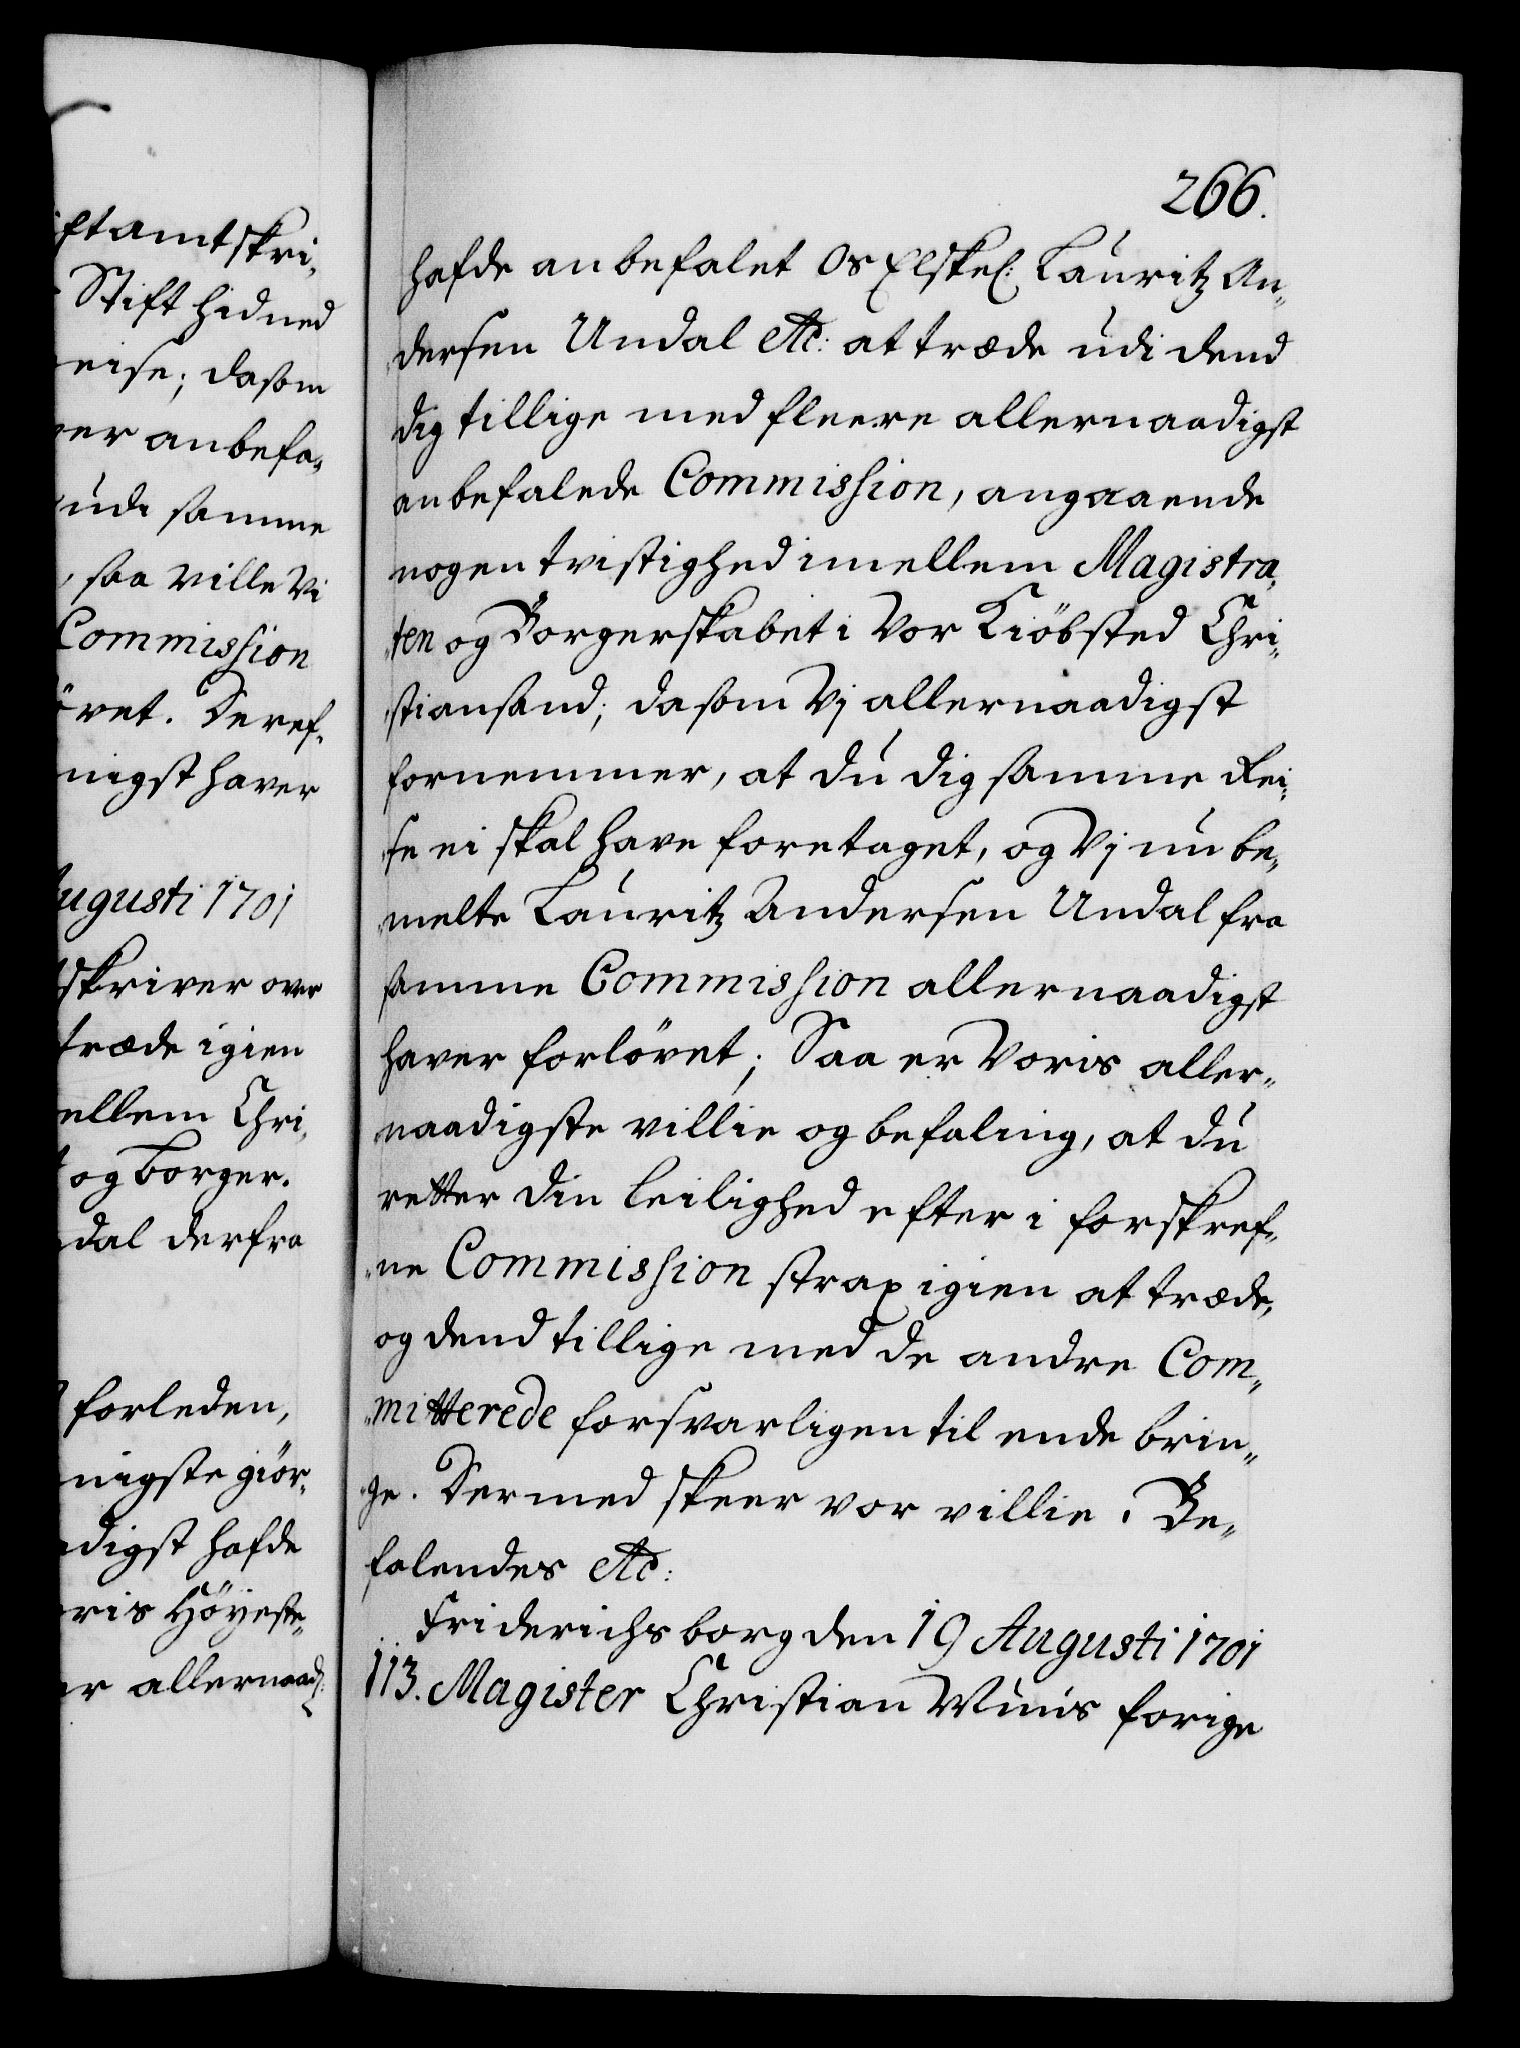 ftamtskri,
Stift hidned
eise; dasom
er anbefa,,
udi samme
, saa ville Vi
Commission
övet. Deref,,
nigst haver
ugusti 1701
skriver over
træde igien
ellem Chri,
og borger.
dal derfra
forleden,
nigste giör,
digst hafde
ris Höyeste,,
er allernaad:
266.
hafde anbefalet Os Elskel: Lauritz An,,
dersen Undal etc: at træde udi dend
dig tillige med fleere allernaadigst
anbefalede Commission, angaaende
nogen tvistighed imellem Magistra,
,,ten og Borgerskabet i Vor Kiöbsted Chri,,
,,stiansand; dasom Vj allernaadigst
fornemmer, at du dig samme Rei,,
,,se ei skal have foretaget, og Vj nu be,,
,,melte Lauritz Andersen Undal fra
samme Commission allernaadigst
haver forlövet; Saa er Voris aller,,
,,naadigste villie og befaling, at du
retter din leilighed efter i forskref,,
,,ne Commission strax igien at træde,
og dend tillige med de andre Com,,
,,mitterede forsvarligen til ende brin,,
,,ge. Dermed skeer vor villie. Be,,
falendes etc:
Friderichsborg den 19 Augusti 1701
113. Magister Christian Wiuis forige